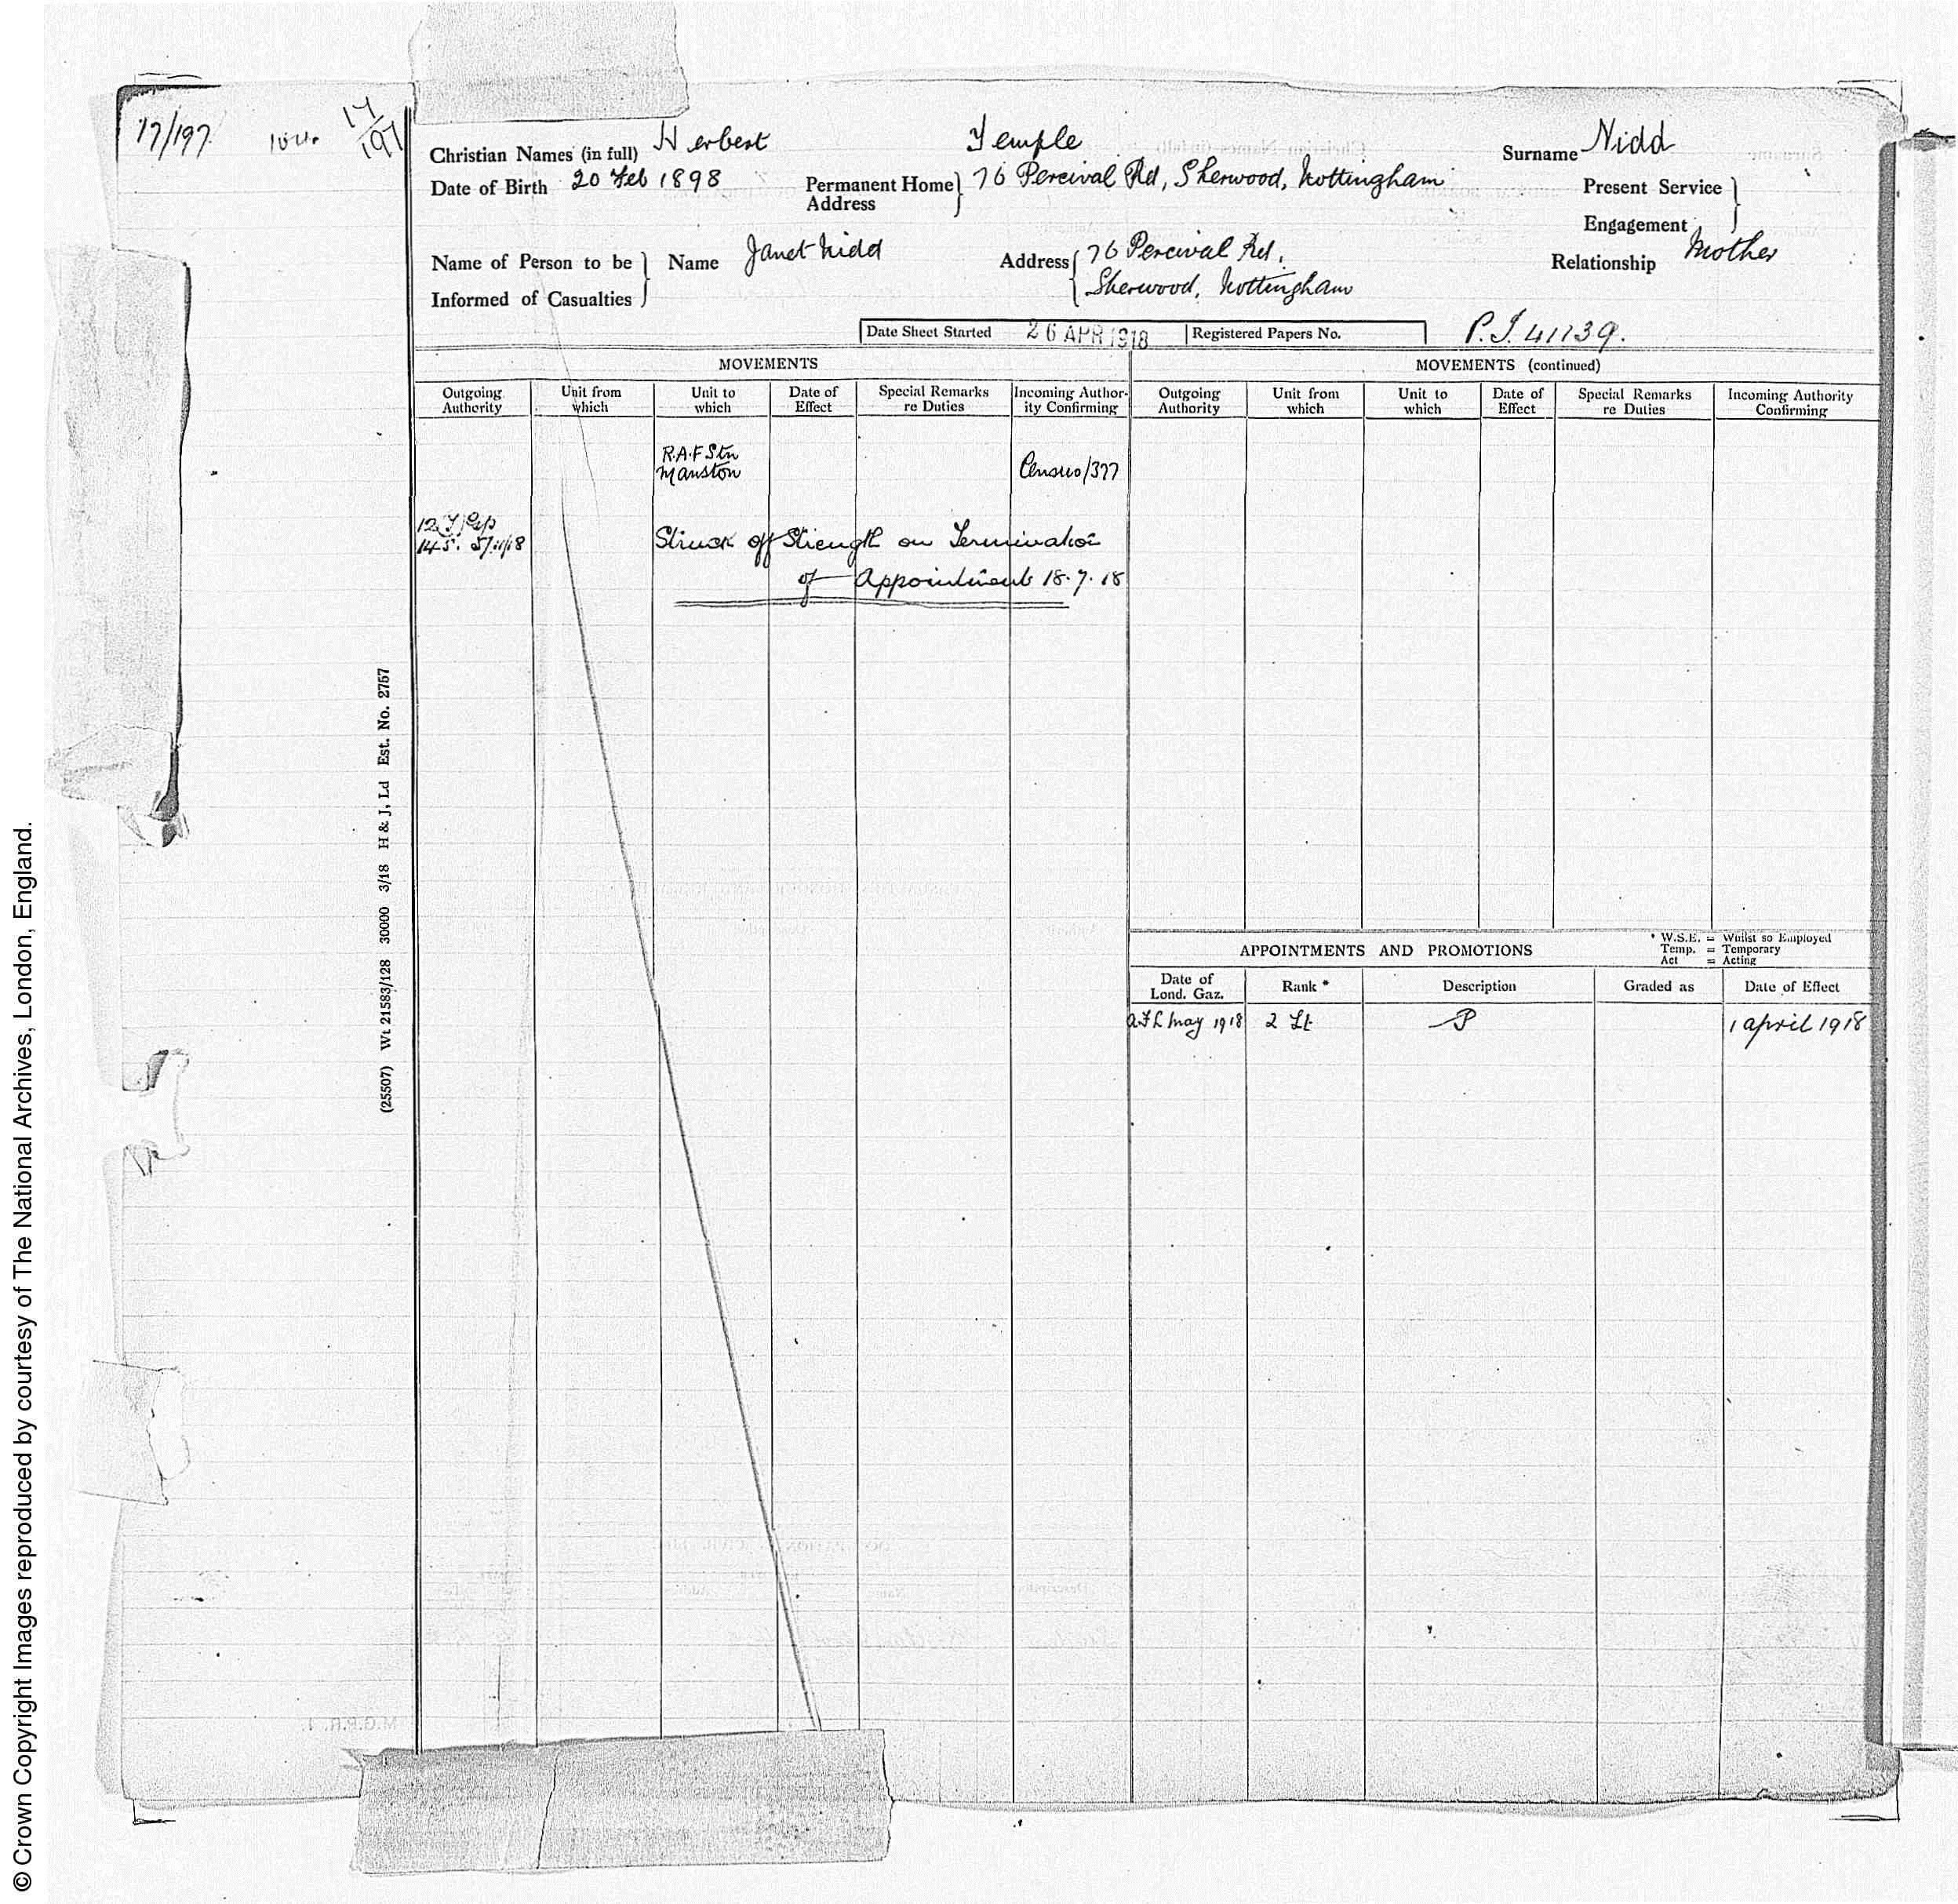 17/197
17/197
Christian Names (in full) Herbert Temple
Surname Nidd
Date of Birth 20 Feb 1898
Permanent Home Address } 76 Percival Rd, Sherwood, Nottingham
Present Service
Engagement }
Name of Person to be Informed of Casualties } Name Janet Nidd
Address { 76 Percival Rd,
Sherwood, Nottingham
Relationship Mother
Date Sheet Started 26 APR 1918
Registered Papers No. P.I. 41139.
MOVEMENTS
Outgoing Authority
Unit from which
Unit to which
Date of Effect
Special Remarks re Duties
Incoming Authority Confirming
R.A.F Stn
Manston
Census/377
Struck off Strength on Termination
of Appointment 18.7.18
MOVEMENTS (continued)
Outgoing Authority
Unit from which
Unit to which
Date of Effect
Special Remarks re Duties
Incoming Authority Confirming
APPOINTMENTS AND PROMOTIONS
* W.S.E. = Whilst so Employed
Temp. = Temporary
Act = Acting
Date of Lond. Gaz.
Rank *
Description
Graded as
Date of Effect
A.F.L May 1918 2 Lt P 1 April 1918
(25507) Wt 21583/128 30000 3/18 H & J, Ld Est. No. 2757
© Crown Copyright Images reproduced by courtesy of The National Archives, London, England.